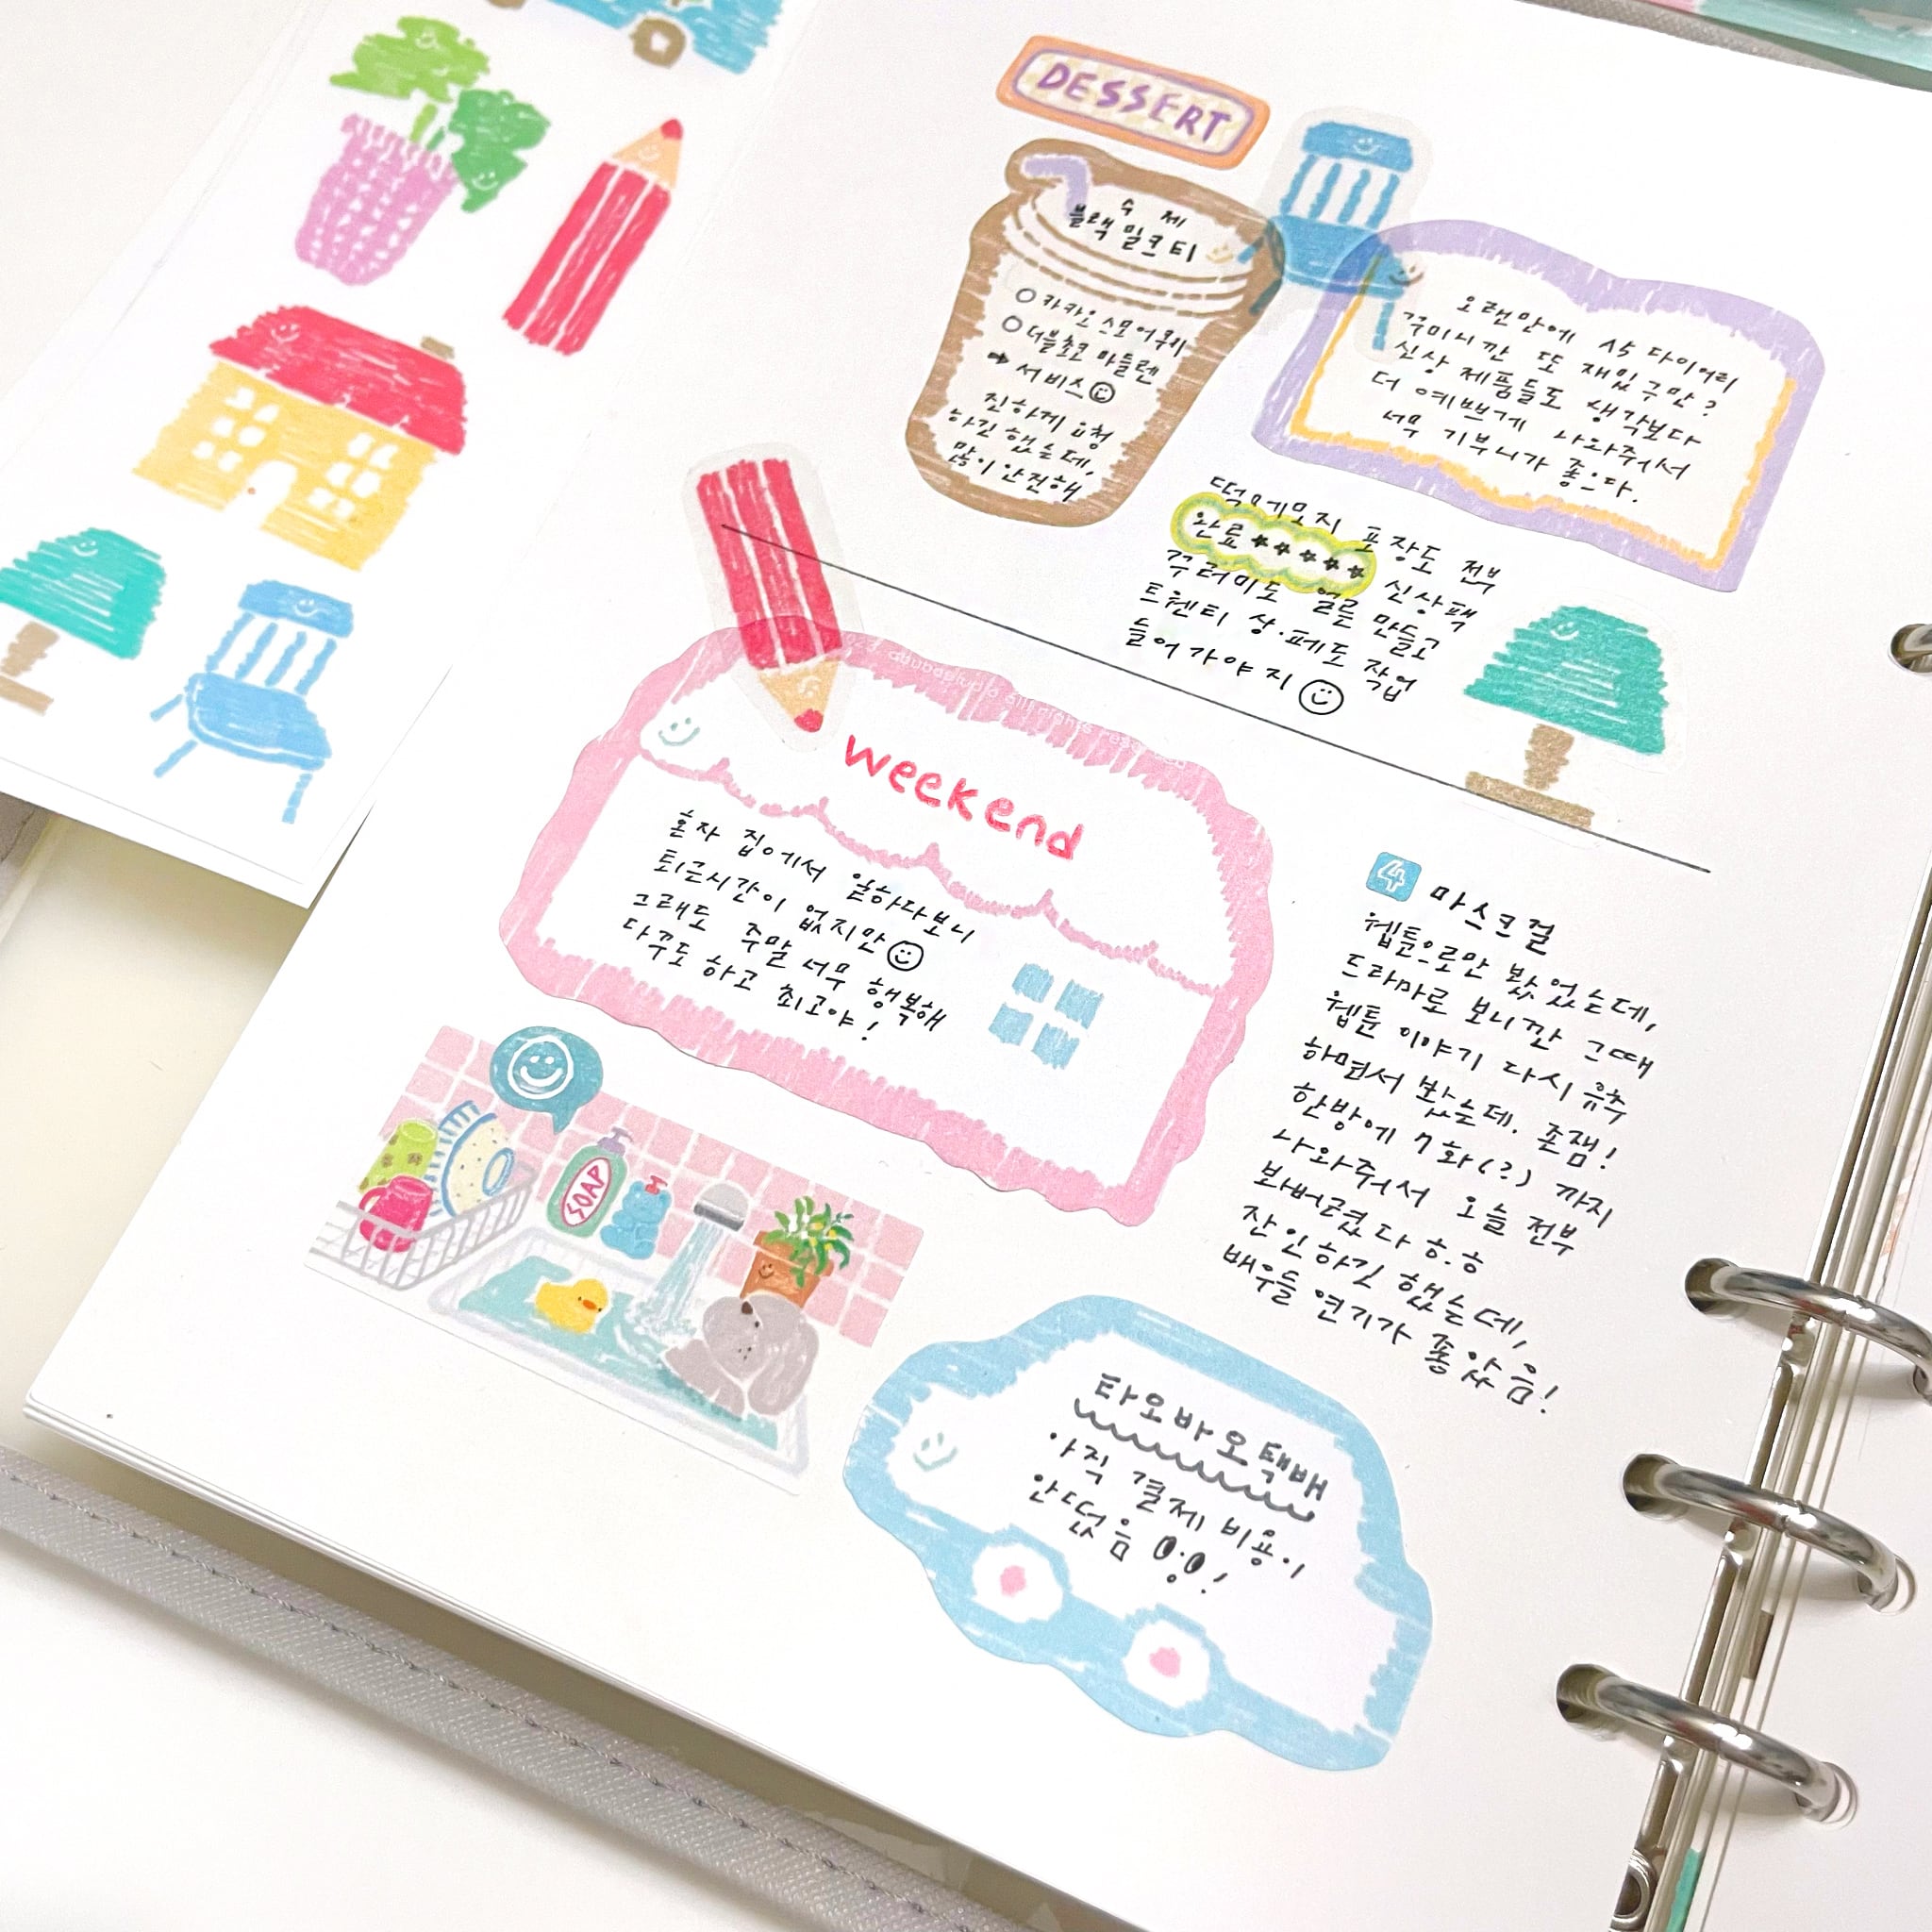 DESSERT
수제
블랙 밀크티
카카오 스모어쿠키
더블초코 마들렌
➡ 서비스
진하게 요청
하긴 했는데,
많이 안진해
오랜만에 A5 다이어리
꾸미니깐 또 재밌구만?
신상 제품들도 생각보다
더 예쁘게 나와줘서
너무 기부니가 좋은다.
떡메모지 포장도 전부
완료 ★★★★★ 신상팩
꾸러미도 얼른 만들고
트웬티 상·페도 작업
들어가야지
weekend
혼자 집에서 일하다보니
퇴근시간이 없지만
그래도 주말 너무 행복해
다꾸도 하고 최고야!
SOAP
4 마스크걸
웹툰으로만 봤었는데,
드라마로 보니깐 그때
웹툰 이야기 다시 유추
하면서 봤는데. 존잼!
한방에 7화(?) 까지
나와줘서 오늘 전부
봐버렸다 ㅎ.ㅎ
잔인하긴 했는데,
배우들 연기가 좋았음!
타오바오택배
아직 결제 비용이
안떴음 0.0!